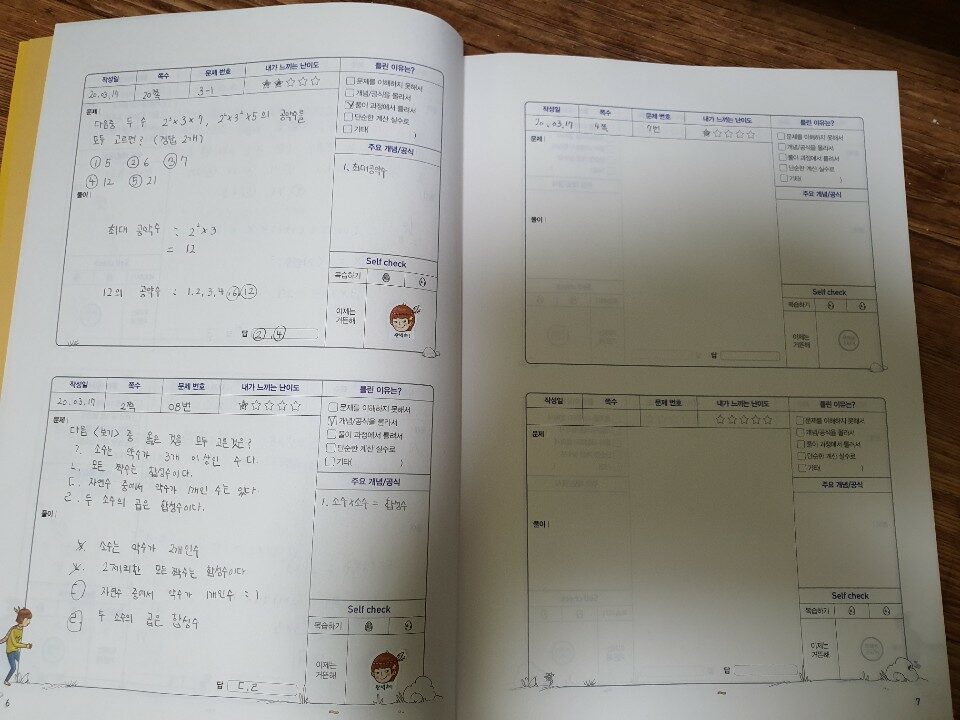 작성일 쪽수 문제 번호 내가 느끼는 난이도 틀린 이유는?
20.03.17 20쪽 3-1 ★★☆☆☆
문제를 이해하지 못해서
개념/공식을 몰라서
풀이 과정에서 틀려서
단순한 계산 실수로
기타( )
문제
다음중 두 수 2²×3×7, 2²×3²×5의 공약수를
모두 고르면? (정답 2개)
① 5 ② 6 ③ 7
④ 12 ⑤ 21
주요 개념/공식
1. 최대공약수
풀이
최대 공약수 : 2²×3
= 12
12의 공약수 : 1, 2, 3, 4, 6, 12
Self check
복습하기
이제는
거뜬해
답 ②, ④
작성일 쪽수 문제 번호 내가 느끼는 난이도 틀린 이유는?
20.03.17 2쪽 08번 ★☆☆☆☆
문제를 이해하지 못해서
개념/공식을 몰라서
풀이 과정에서 틀려서
단순한 계산 실수로
기타( )
문제
다음 <보기> 중 옳은 것을 모두 고른것은?
ㄱ. 소수는 약수가 3개 이상인 수다.
ㄴ. 모든 짝수는 합성수이다.
ㄷ. 자연수 중에서 약수가 1개인 수도 있다.
ㄹ. 두 소수의 곱은 합성수이다.
주요 개념/공식
1. 소수×소수 = 합성수
풀이
소수는 약수가 2개인수
2제외한 모든 짝수는 합성수이다
ㄷ 자연수 중에서 약수가 1개인수 : 1
ㄹ 두 소수의 곱은 합성수
Self check
복습하기
이제는
거뜬해
답 ㄷ, ㄹ
6
작성일 쪽수 문제 번호 내가 느끼는 난이도 틀린 이유는?
20.03.17 4쪽 9번 ★☆☆☆☆
문제를 이해하지 못해서
개념/공식을 몰라서
풀이 과정에서 틀려서
단순한 계산 실수로
기타( )
문제
주요 개념/공식
풀이
Self check
복습하기
이제는
거뜬해
답
작성일 쪽수 문제 번호 내가 느끼는 난이도 틀린 이유는?
☆☆☆☆☆
문제를 이해하지 못해서
개념/공식을 몰라서
풀이 과정에서 틀려서
단순한 계산 실수로
기타( )
문제
주요 개념/공식
풀이
Self check
복습하기
이제는
거뜬해
답
7